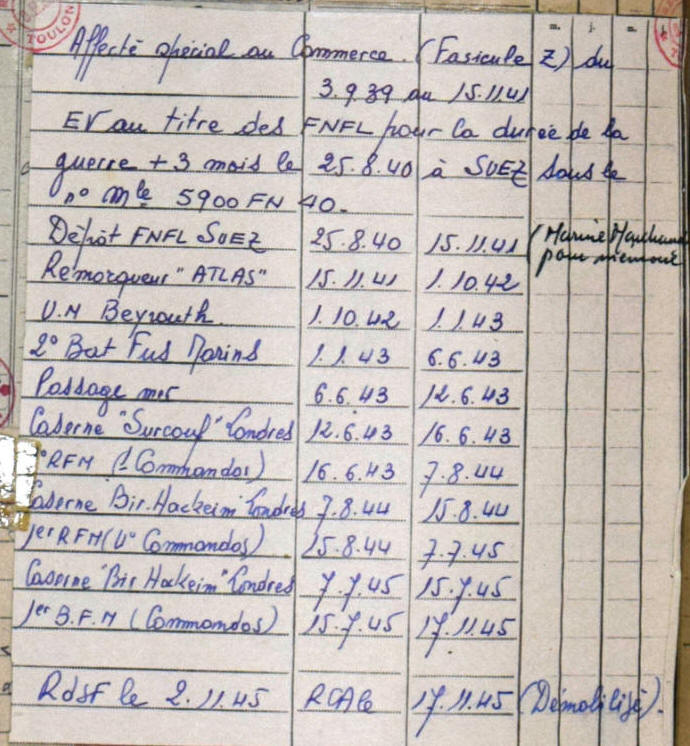 TOULON
m. j. m.
Affecté spécial au Commerce. (Fasicule Z) du
3.9.39 au 15.11.41
EV au titre des FNFL pour la durée de la
guerre + 3 mois le 25.8.40 à SUEZ sous le
n° Mle 5900 FN 40.
Dépôt FNFL SUEZ 25.8.40 15.11.41 (Marine Marchande
pour mémoire
Remorqueur "ATLAS" 15.11.41 1.10.42
U.M Beyrouth. 1.10.42 1.1.43
2° Bat Fus Marins 1.1.43 6.6.43
Passage mer 6.6.43 12.6.43
Caserne "Surcouf" Londres 12.6.43 16.6.43
°RFM (1 Commandos) 16.6.43 7.8.44
Caserne Bir.Hackeim Londres 7.8.44 15.8.44
1er RFM (4° Commandos) 15.8.44 7.7.45
Caserne "Bir Hackeim" Londres 7.7.45 15.7.45
1er B.F.M (Commandos) 15.7.45 17.11.45
RdSF le 2.11.45 RCA le 17.11.45 (Démobilisé).